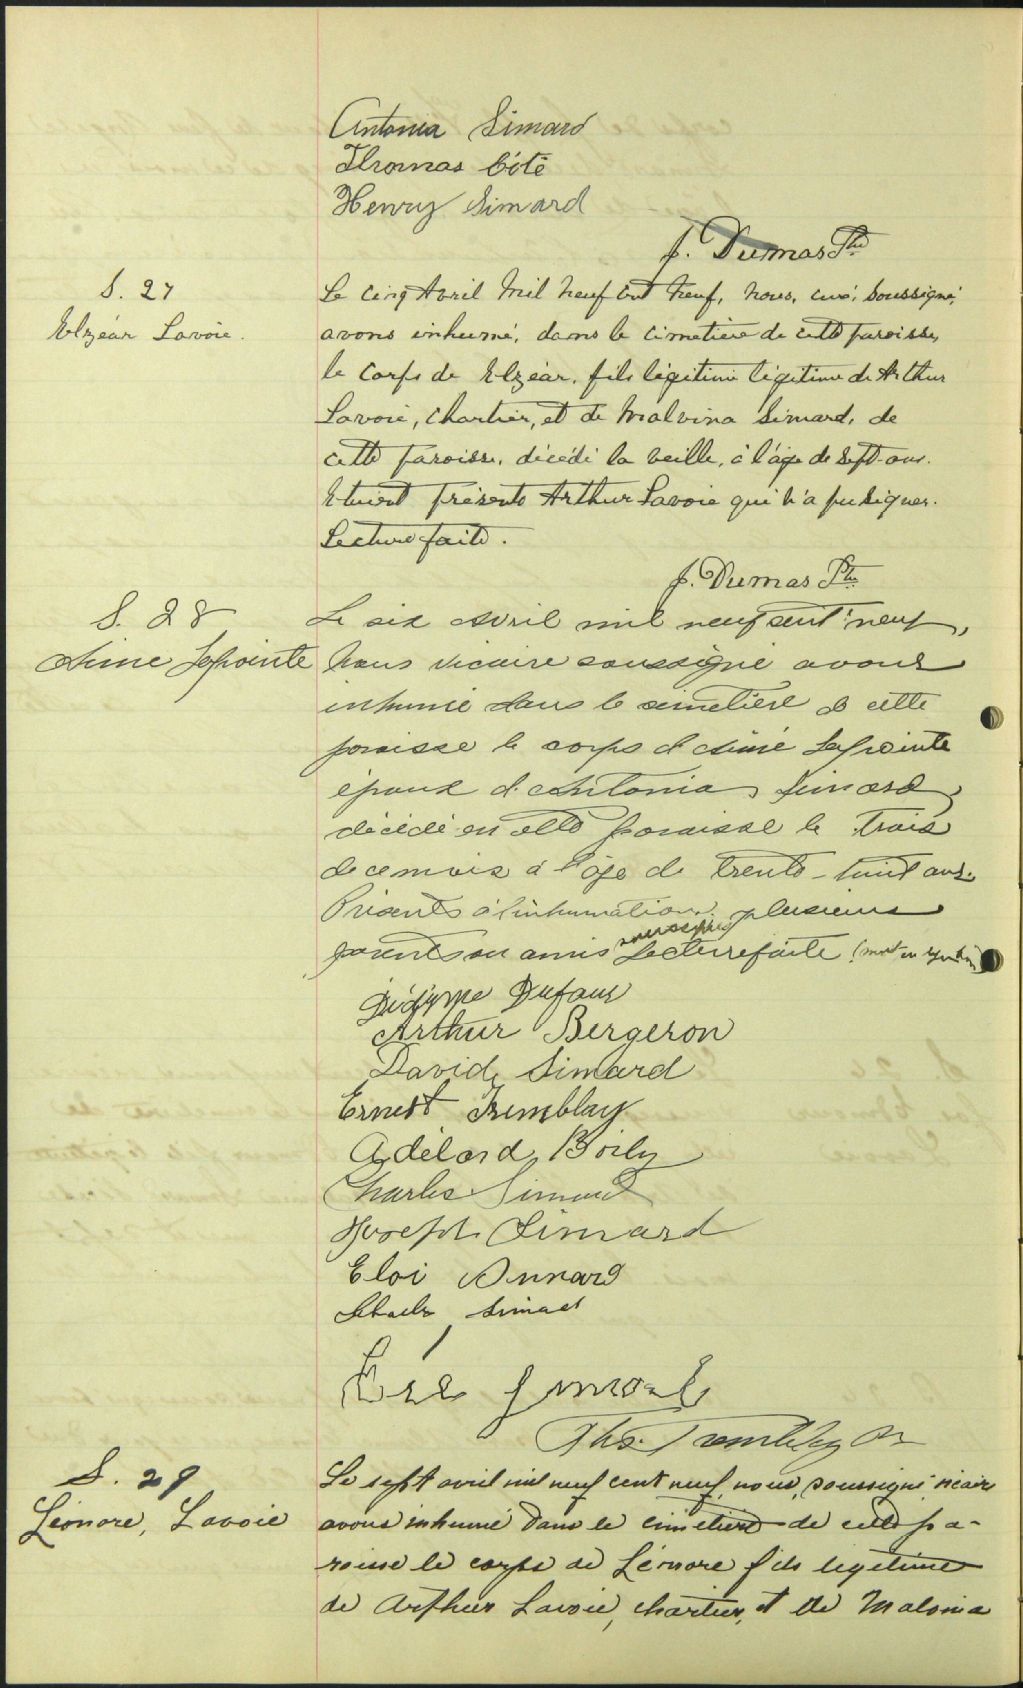 Antonia Simard
Thomas Côté
Henry Simard
J. Dumas Ptre
S. 27
Elzéar Lavoie.
Le cinq Avril mil neuf cent neuf, nous, curé, soussigné,
avons inhumé, dans le cimetière de cette paroisse,
le corps de Elzéar, fils légitime légitime de Arthur
Lavoie, chartier, et de Malvina Simard, de
cette paroisse, décédé la veille, à l'âge de sept ans.
Etaient présents Arthur Lavoie qui n'a pu signer.
Lecture faite.
J. Dumas Ptre
S. 28
Aimé Lapointe
Le six avril mil neuf cent neuf,
nous vicaire soussigné avons
inhumé dans le cimetière de cette
paroisse le corps d'Aimé Lapointe
époux d'Antonia Simard,
décédé en cette paroisse le trois
de ce mois à l'âge de trente-huit ans.
Présents à l'inhumation plusieurs
parents ou amis soussignés Lecture faite (mort
Dufour
Arthur Bergeron
David Simard
Ernest Tremblay
Adélard Boily
Charles Simard
Joseph Simard
Eloi Simard
Simard
Simard
Ths. Tremblay Ptre
S. 29
Léonore, Lavoie
Le sept avril mil neuf cent neuf, nous, soussigné vicaire
avons inhumé dans le cimetière de cette pa-
roisse le corps de Léonore fils légitime
de Arthur Lavoie, chartier, et de Malvina